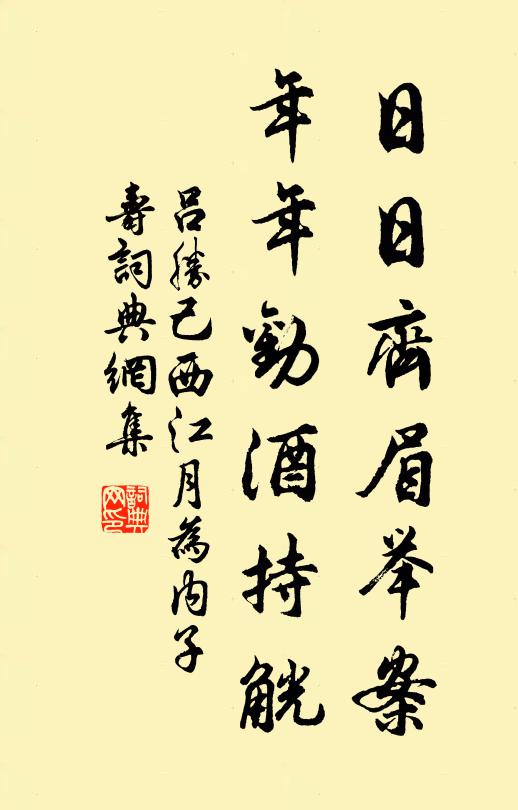 日日齊眉举案
年年勸酒持觥
吕勝己西江月為内子
壽詞典網集
詞典网印